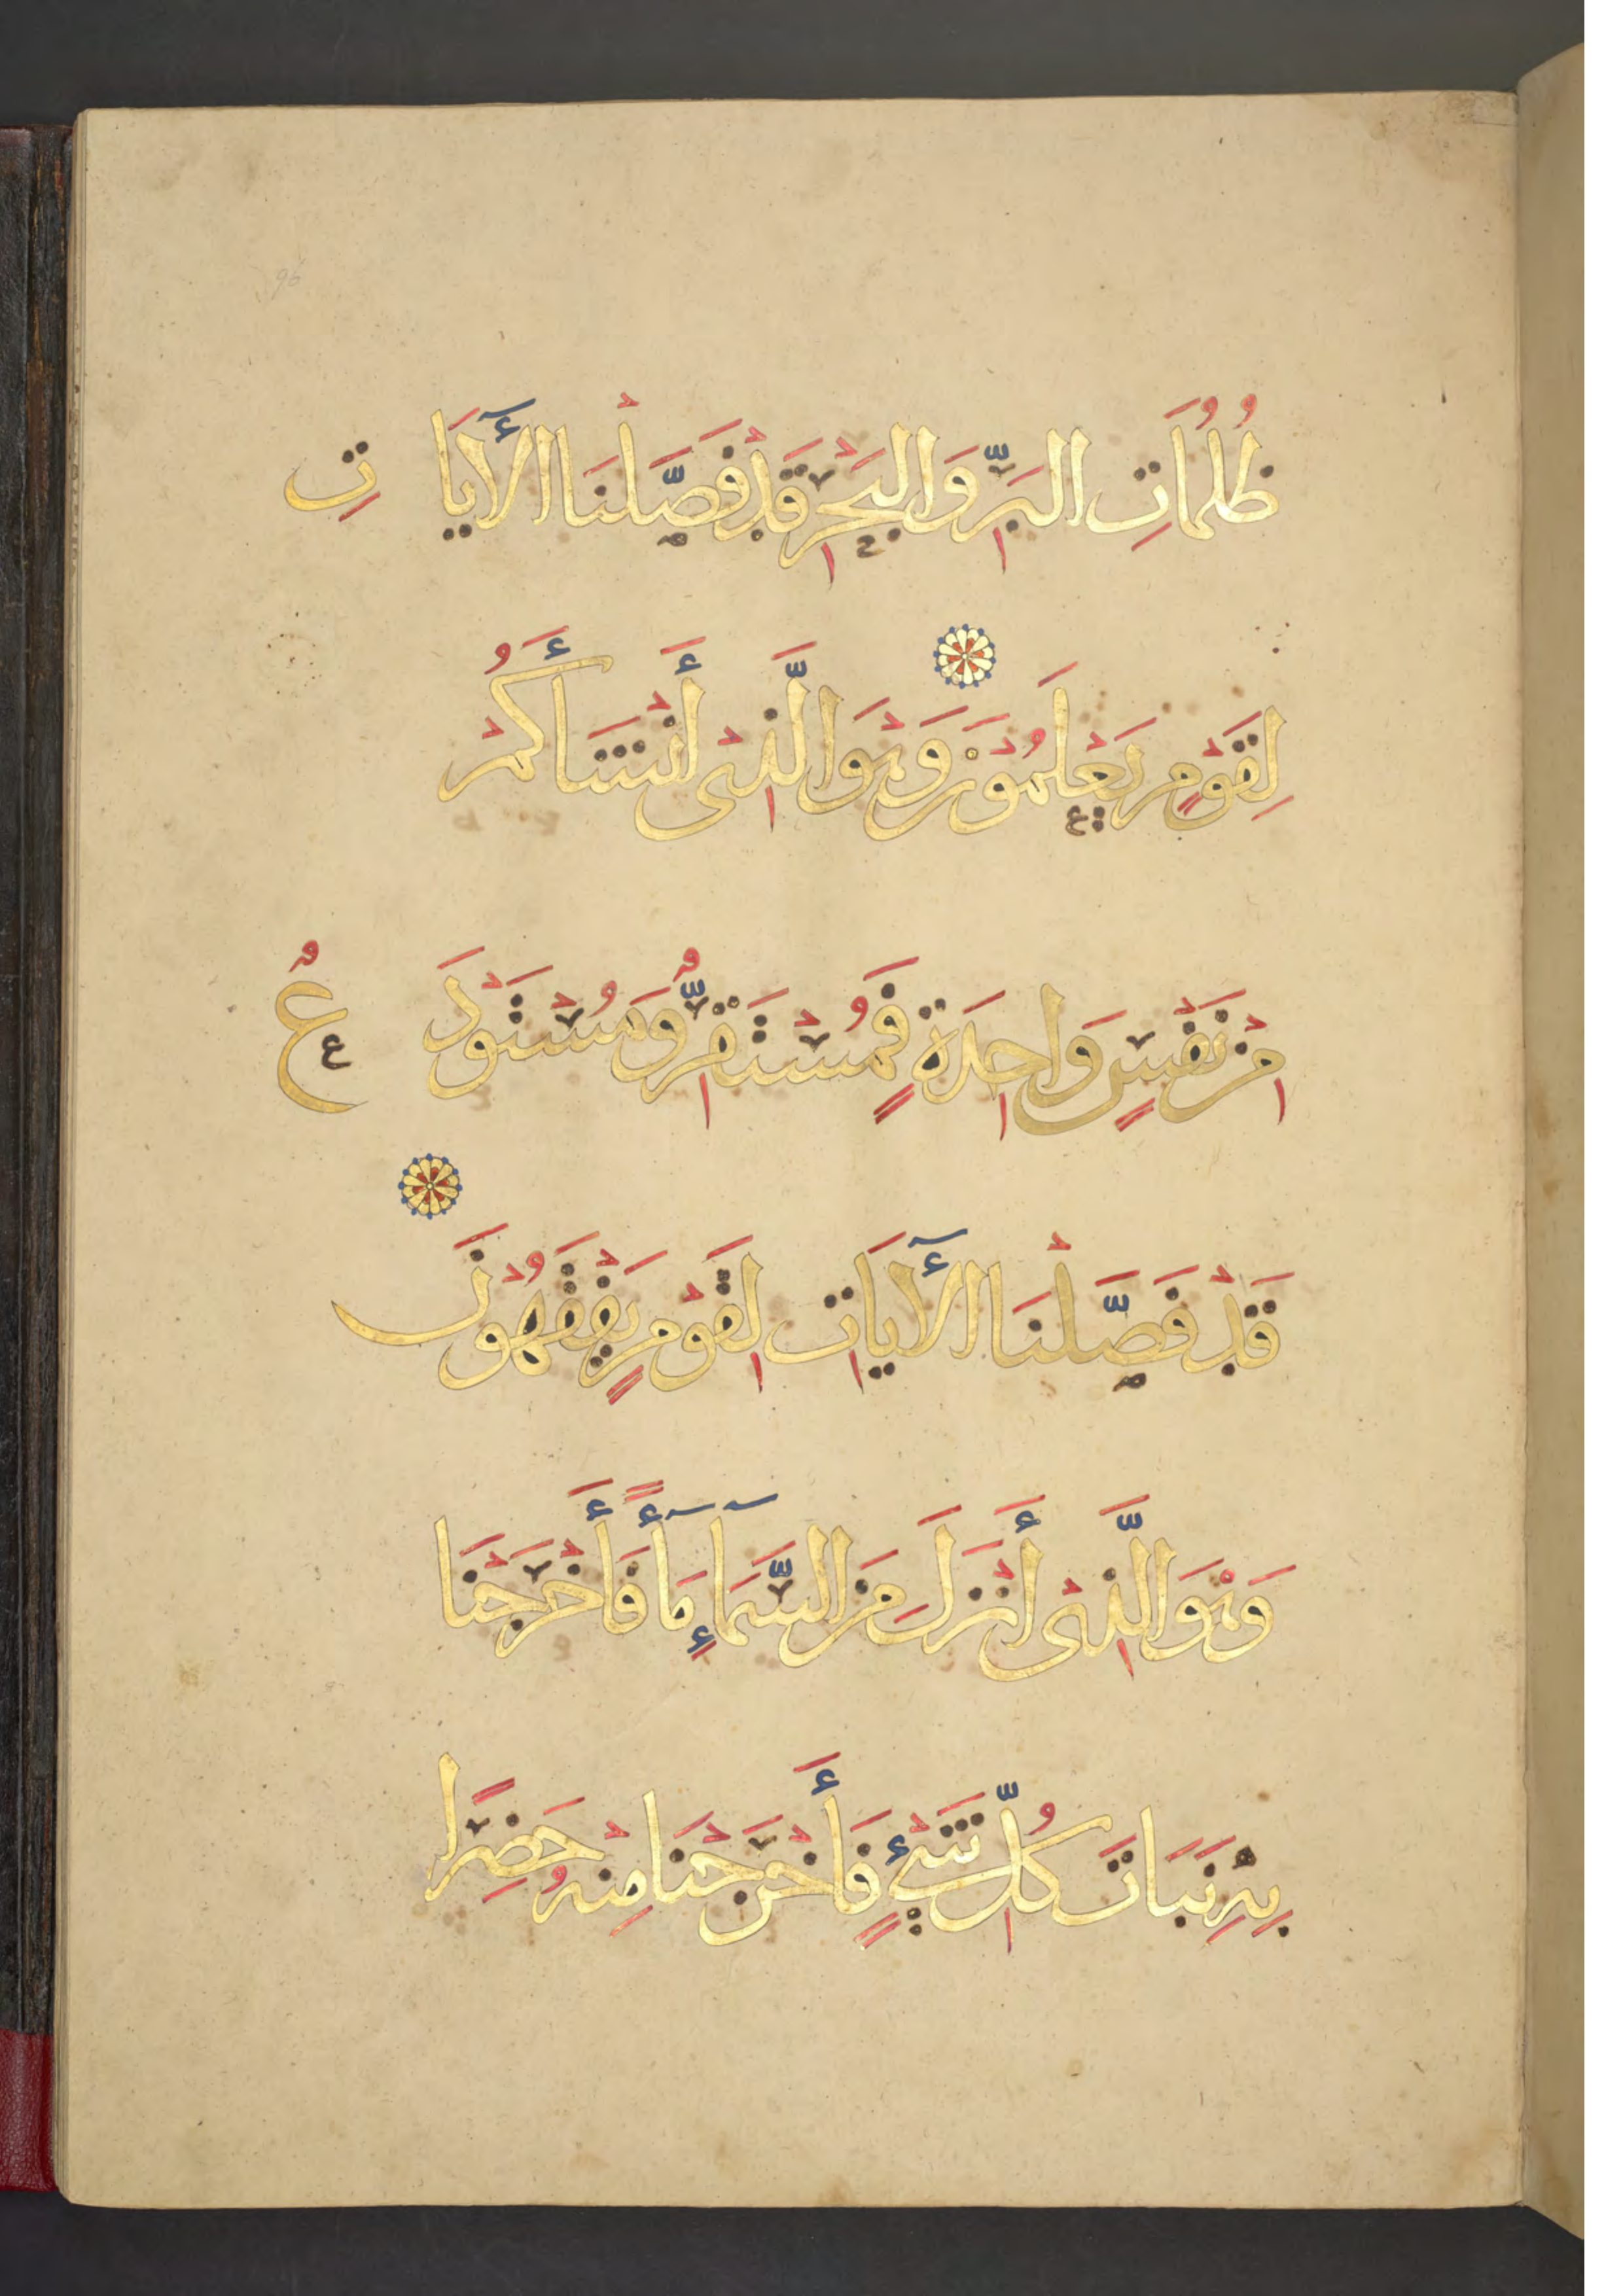 ظُلُمَاتِ الْبَرِّ وَالْبَحْرِ قَدْ فَصَّلْنَا الْأٓيَاتِ
لِقَوْمٍ يَعْلَمُوْنَ وَهْوَ الَّذِىْ أَنْشَأَكُمْ
مِنْ نَفْسٍ وَاحِدَةٍ فَمُسْتَقِرٌّ وَمُسْتَوْدَعٌ
قَدْ فَصَّلْنَا الْأٓيَاتِ لِقَوْمٍ يَفْقَهُوْنَ
وَهْوَ الَّذِىْ أَنْزَلَ مِنَ السَّمَآءِ مَآءً فَأَخْرَجْنَا
بِهِ نَبَاتَ كُلِّ شَيْءٍ فَأَخْرَجْنَا مِنْهُ خَضِرًا